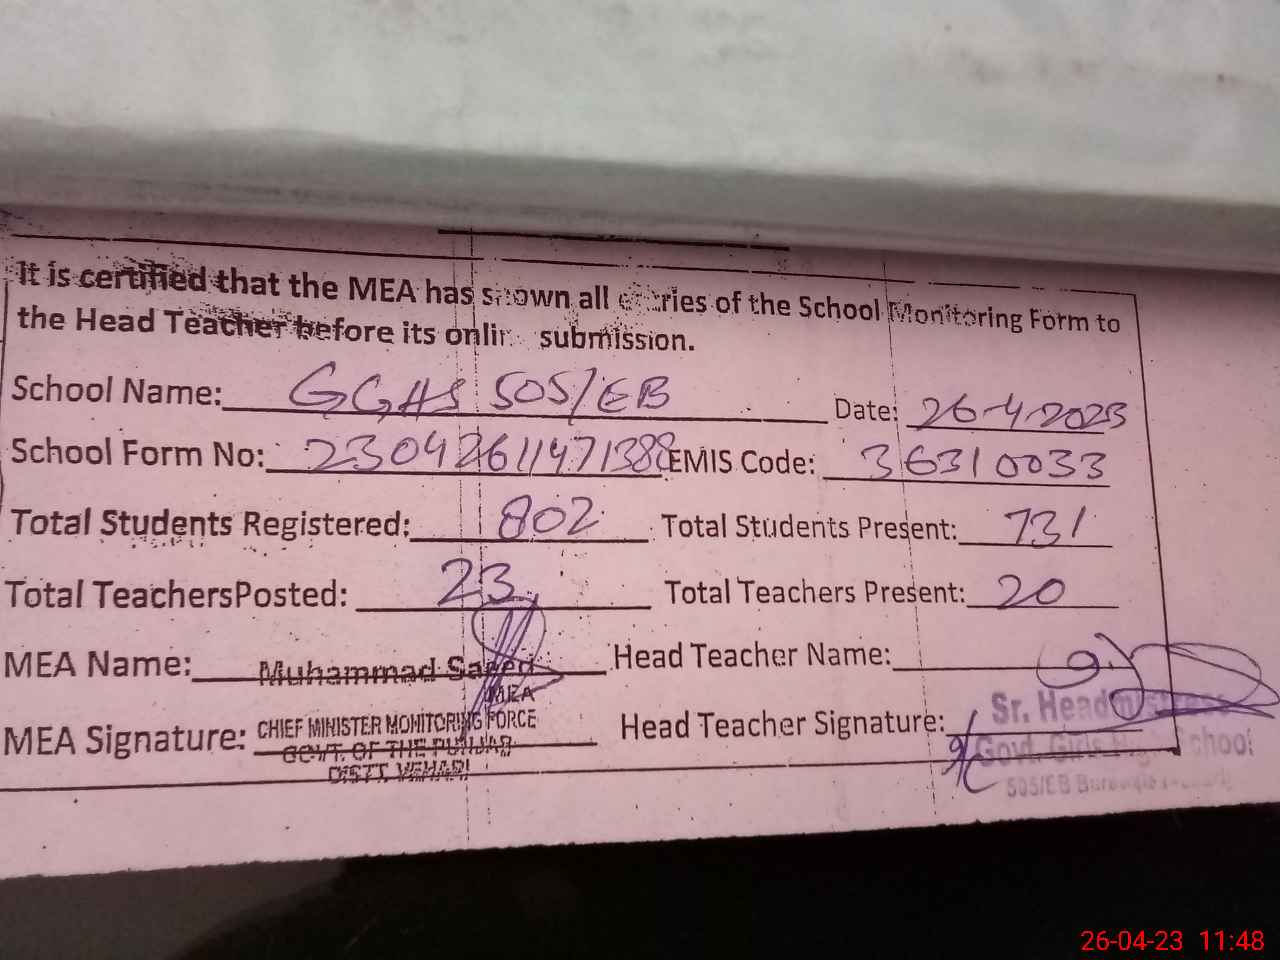 It is certified that the MEA has shown all entries of the School Monitoring Form to
the Head Teacher before its online submission.
School Name: GGHS 505/EB Date: 26-4-2023
School Form No: 23042611471388 EMIS Code: 36310033
Total Students Registered: 802 Total Students Present: 731
Total TeachersPosted: 23 Total Teachers Present: 20
MEA Name: Muhammad Saeed Head Teacher Name:
MEA
MEA Signature: CHIEF MINISTER MONITORING FORCE Head Teacher Signature:
GOVT. OF THE PUNJAB
DISTT. VEHARI
Sr. Headmistress
Govt. Girls High School
505/EB
26-04-23 11:48